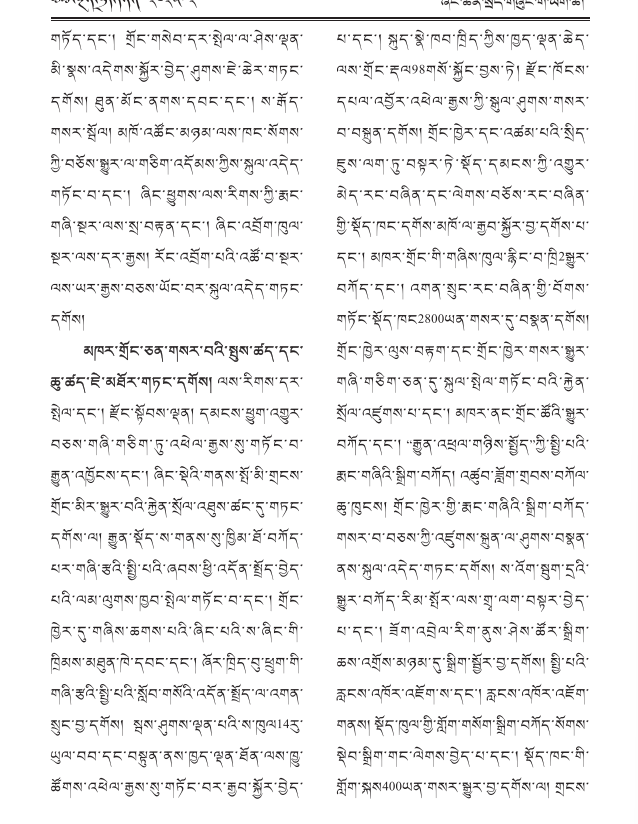 གཏོད་དང་། གྲོང་གསེབ་དར་སྤེལ་ལ་ཤེས་ལྡན་
མི་སྣས་འདེགས་སྐྱོར་བྱེད་ཤུགས་ཇེ་ཆེར་གཏང་
དགོས། ཐུན་མོང་ནགས་དབང་དང་། ས་རྒོད་
གསར་སྤོལ། མཁོ་འཚོང་མཉམ་ལས་ཁང་སོགས་
ཀྱི་བཅོས་སྒྱུར་ལ་གཅིག་འདོམས་ཀྱིས་སྐུལ་འདེད་
གཏོང་བ་དང་། ཞིང་ཕྱུགས་ལས་རིགས་ཀྱི་རྨང་
གཞི་སྔར་ལས་སྲ་བརྟན་དང་། ཞིང་འབྲོག་ཁུལ་
སྔར་ལས་དར་རྒྱས། རོང་འབྲོག་པའི་འཚོ་བ་སྔར་
ལས་ཡར་རྒྱས་བཅས་ཡོང་བར་སྐུལ་འདེད་གཏང་
དགོས།
མཁར་གྲོང་ཅན་གསར་བའི་སྤུས་ཚད་དང་
ཆུ་ཚད་ཇེ་མཐོར་གཏང་དགོས། ལས་རིགས་དར་
སྤེལ་དང་། རྫོང་སྟོབས་ལྡན། དམངས་ཕྱུག་འགྱུར་
བཅས་གཞི་གཅིག་ཏུ་འཕེལ་རྒྱས་སུ་གཏོང་བ་
རྒྱུན་འཁྱོངས་དང་། ཞིང་སྡེའི་གནས་སྤོ་མི་གྲངས་
གྲོང་མིར་སྒྱུར་བའི་རྐྱེན་སྲོལ་འཐུས་ཚང་དུ་གཏང་
དགོས་ལ། རྒྱུན་སྡོད་ས་གནས་སུ་ཁྱིམ་ཐོ་བཀོད་
པར་གཞི་རྩའི་སྤྱི་པའི་ཞབས་ཕྱི་འདོན་སྤྲོད་བྱེད་
པའི་ལམ་ལུགས་ཁྱབ་སྤེལ་གཏོང་བ་དང་། གྲོང་
ཁྱེར་དུ་གཞིས་ཆགས་པའི་ཞིང་པའི་ས་ཞིང་གི་
ཁྲིམས་མཐུན་ཁེ་དབང་དང་། ཞོར་ཁྲིད་བུ་ཕྲུག་གི་
གཞི་རྩའི་སྤྱི་པའི་སློབ་གསོའི་འདོན་སྤྲོད་ལ་འགན་
སྲུང་བྱ་དགོས། སྦས་ཤུགས་ལྡན་པའི་ས་ཁུལ14རུ་
ཡུལ་བབ་དང་བསྟུན་ནས་ཁྱད་ལྡན་ཐོན་ལས་ཁྱུ་
ཚོགས་འཕེལ་རྒྱས་སུ་གཏོང་བར་རྒྱབ་སྐྱོར་བྱེད་
པ་དང་། སྐུད་སྣེ་ཁབ་ཁྲིད་ཀྱིས་ཁྱད་ལྡན་ཆེད་
ལས་གྲོང་རྡལ98གསོ་སྐྱོང་བྱས་ཏེ། རྫོང་ཁོངས་
དཔལ་འབྱོར་འཕེལ་རྒྱས་ཀྱི་སྒུལ་ཤུགས་གསར་
བ་བསྐྲུན་དགོས། གྲོང་ཁྱེར་དང་འཚམ་པའི་སྲིད་
ཇུས་ལག་ཏུ་བསྟར་ཏེ་སྡོད་དམངས་ཀྱི་འགྱུར་
མེད་རང་བཞིན་དང་ལེགས་བཅོས་རང་བཞིན་
གྱི་སྡོད་ཁང་དགོས་མཁོ་ལ་རྒྱབ་སྐྱོར་བྱ་དགོས་པ་
དང་། མཁར་གྲོང་གི་གཞིས་ཁུལ་རྙིང་བ་ཁྲི2སྒྱུར་
བཀོད་དང་། འགན་སྲུང་རང་བཞིན་གྱི་བོགས་
གཏོང་སྡོད་ཁང2800ཡན་གསར་དུ་བསྣན་དགོས།
གྲོང་ཁྱེར་ལུས་བརྟག་དང་གྲོང་ཁྱེར་གསར་སྒྱུར་
གཞི་གཅིག་ཅན་དུ་སྐུལ་སྤེལ་གཏོང་བའི་རྐྱེན་
སྲོལ་འཛུགས་པ་དང་། མཁར་ནང་གྲོང་ཚོའི་སྒྱུར་
བཀོད་དང་། “རྒྱུན་འཕྲལ་གཉིས་སྤྱོད”ཀྱི་སྤྱི་པའི་
རྨང་གཞིའི་སྒྲིག་བཀོད། འཚུབ་ཟློག་གྲབས་བཀོལ་
ཆུ་ཁུངས། གྲོང་ཁྱེར་གྱི་རྨང་གཞིའི་སྒྲིག་བཀོད་
གསར་བ་བཅས་ཀྱི་འཛུགས་སྐྲུན་ལ་ཤུགས་བསྣན་
ནས་སྐུལ་འདེད་གཏང་དགོས། ས་འོག་སྦུག་དྲའི་
སྒྱུར་བཀོད་རིམ་སྤོར་ལས་གྲྭ་ལག་བསྟར་བྱེད་
པ་དང་། ཟོག་འབྲེལ་རིག་ནུས་ཤེས་ཚོར་སྒྲིག་
ཆས་འགྲོས་མཉམ་དུ་སྒྲིག་སྦྱོར་བྱ་དགོས། སྤྱི་པའི་
རླངས་འཁོར་འཇོག་ས་དང་། རླངས་འཁོར་འཇོག་
གནས། སྡོད་ཁུལ་གྱི་གློག་གསོག་སྒྲིག་བཀོད་སོགས་
སྡེབ་སྒྲིག་གང་ལེགས་བྱེད་པ་དང་། སྡོད་ཁང་གི་
གློག་སྐས400ཡན་གསར་སྒྱུར་བྱ་དགོས་ལ། གྲངས་